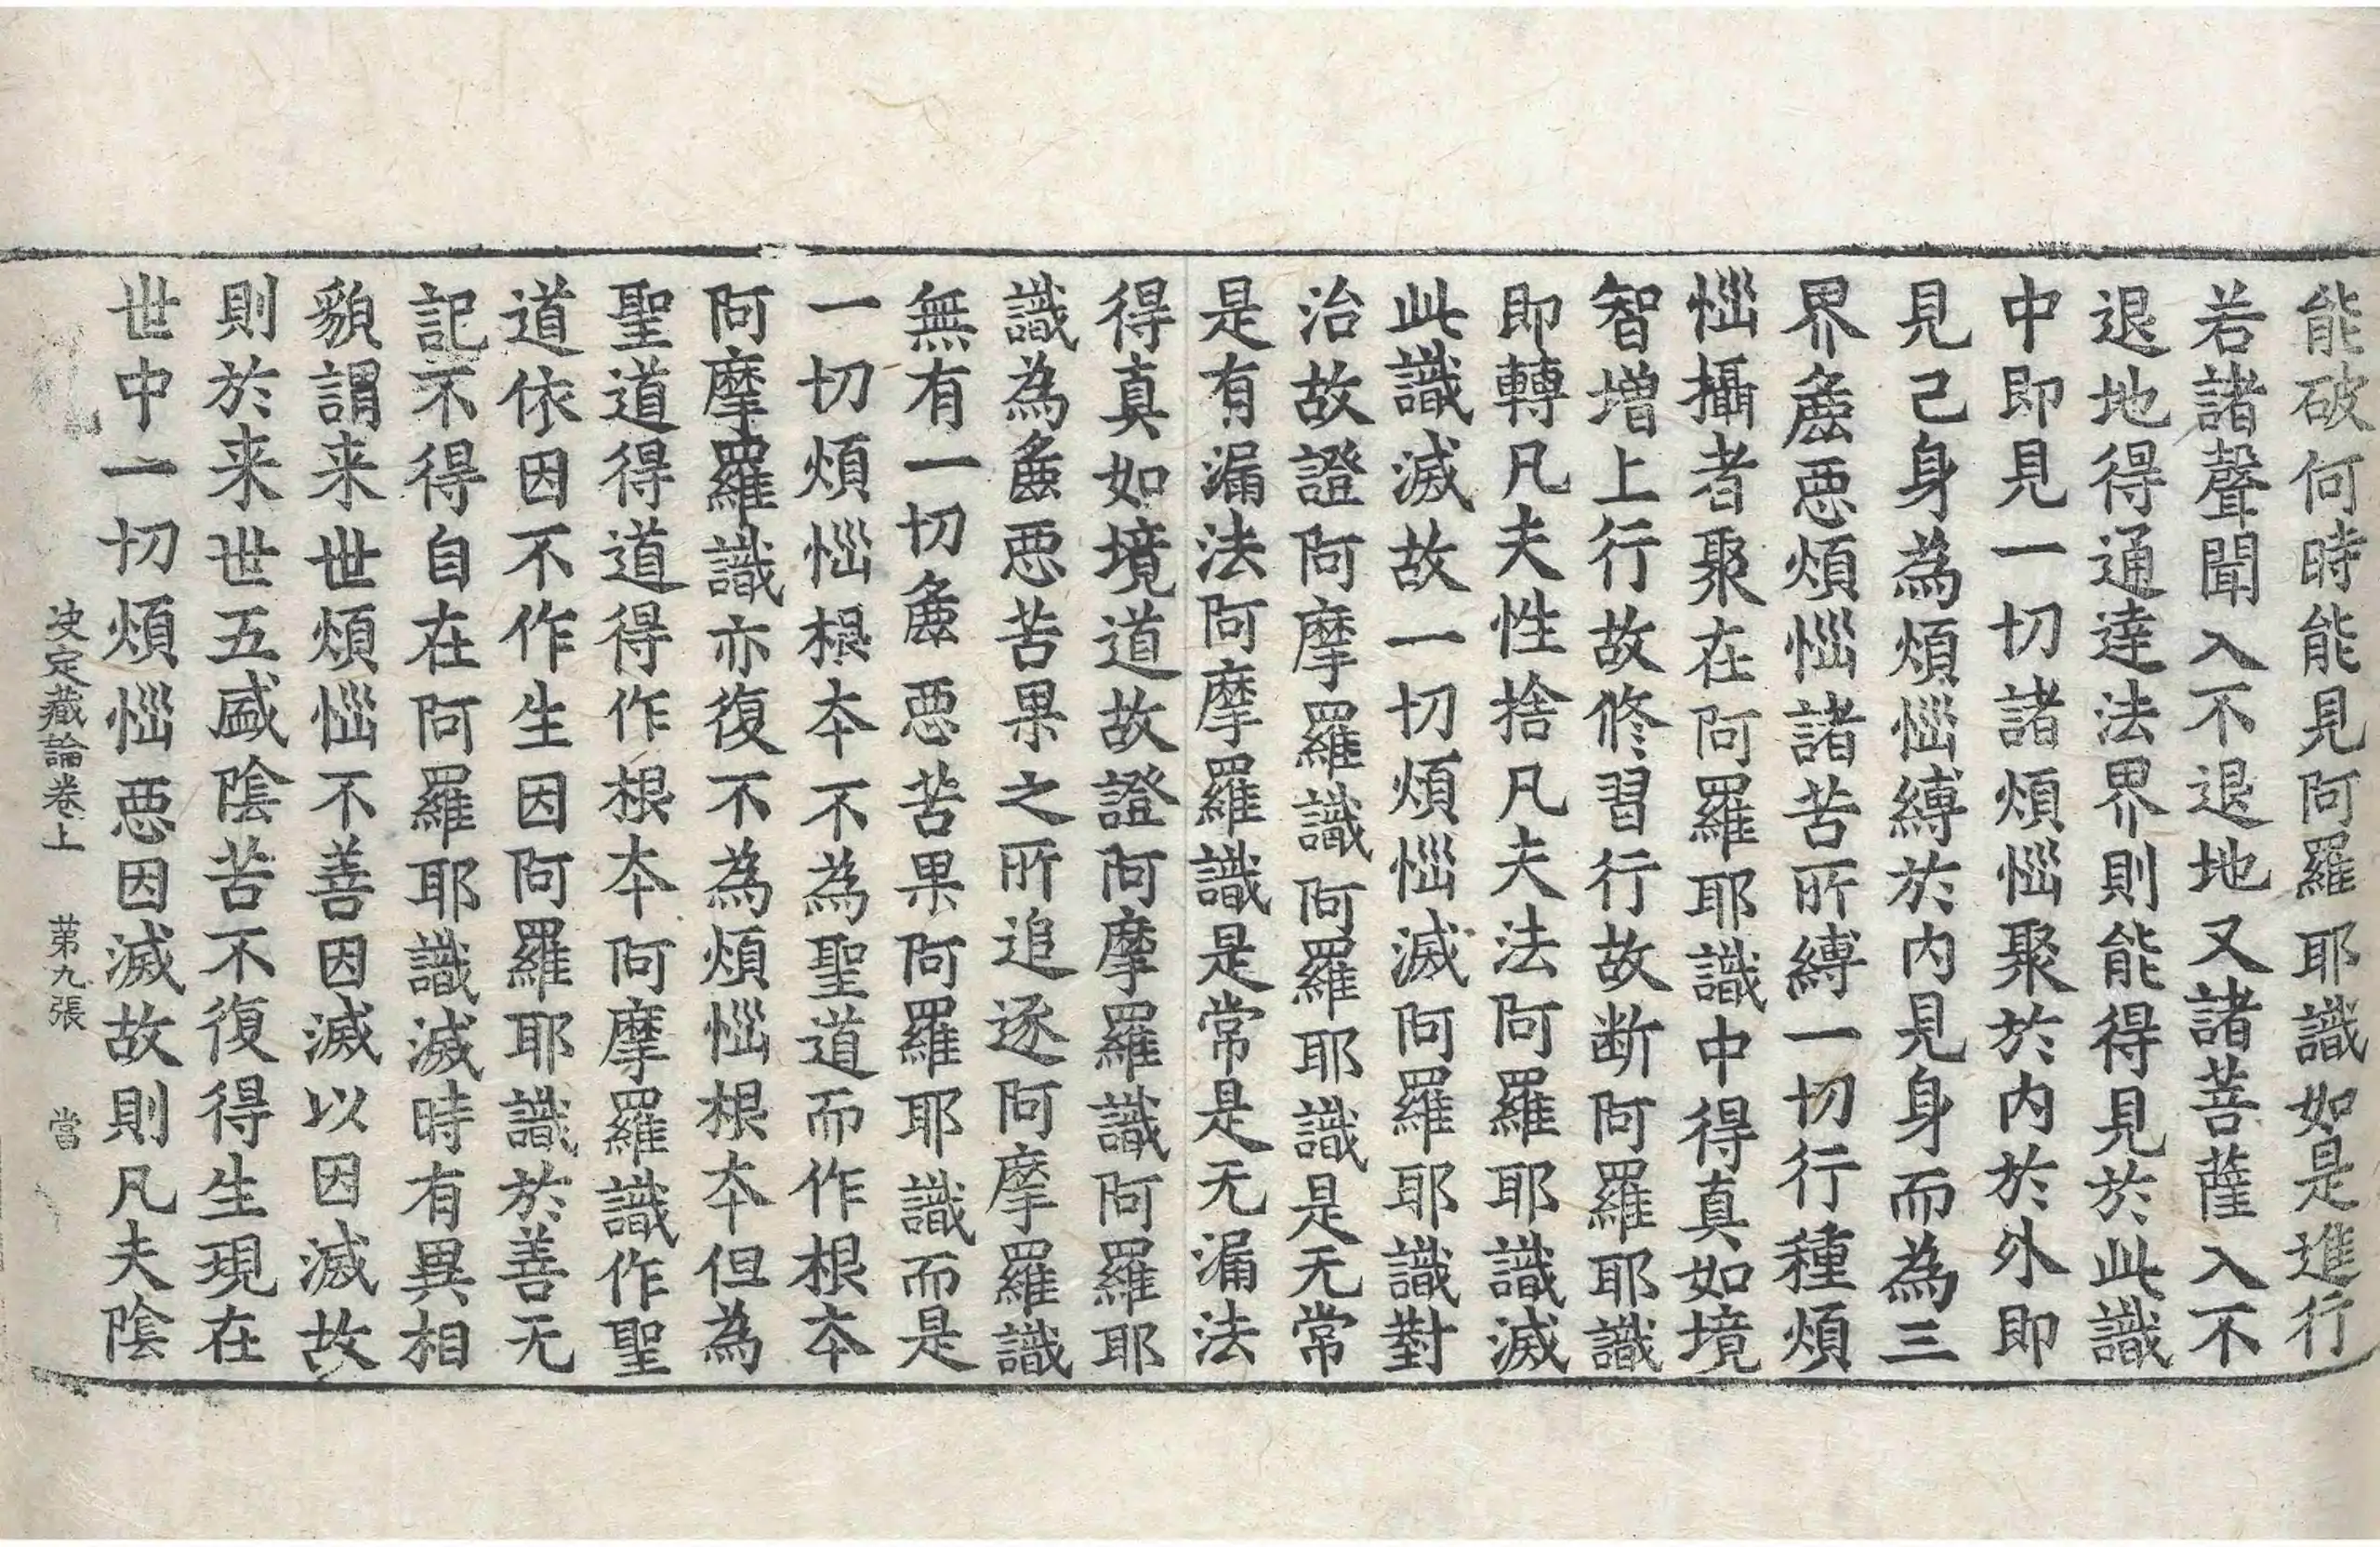 能破何時能見阿羅耶識如是進行
若諸聲聞入不退地又諸菩薩入不
退地得通達法界則能得見於此識
中即見一切諸煩惱聚於内於外即
見己身為煩惱縛於内見身而為三
界麁惡煩惱諸苦所縛一切行種煩
惱攝者聚在阿羅耶識中得真如境
智增上行故修習行故断阿羅耶識
即轉凡夫性捨凡夫法阿羅耶識滅
此識滅故一切煩惱滅阿羅耶識對
治故證阿摩羅識阿羅耶識是无常
是有漏法阿摩羅識是常是无漏法
得真如境道故證阿摩羅識阿羅耶
識為麁惡苦果之所追逐阿摩羅識
無有一切麁惡苦果阿羅耶識而是
一切煩惱根本不為聖道而作根本
阿摩羅識亦復不為煩惱根本但為
聖道得道得作根本阿摩羅識作聖
道依因不作生因阿羅耶識於善无
記不得自在阿羅耶識滅時有異相
貌謂来世煩惱不善因滅以因滅故
則於来世五盛陰苦不復得生現在
世中一切煩惱惡因滅故則凡夫陰
决定藏論卷上 苐九張 當